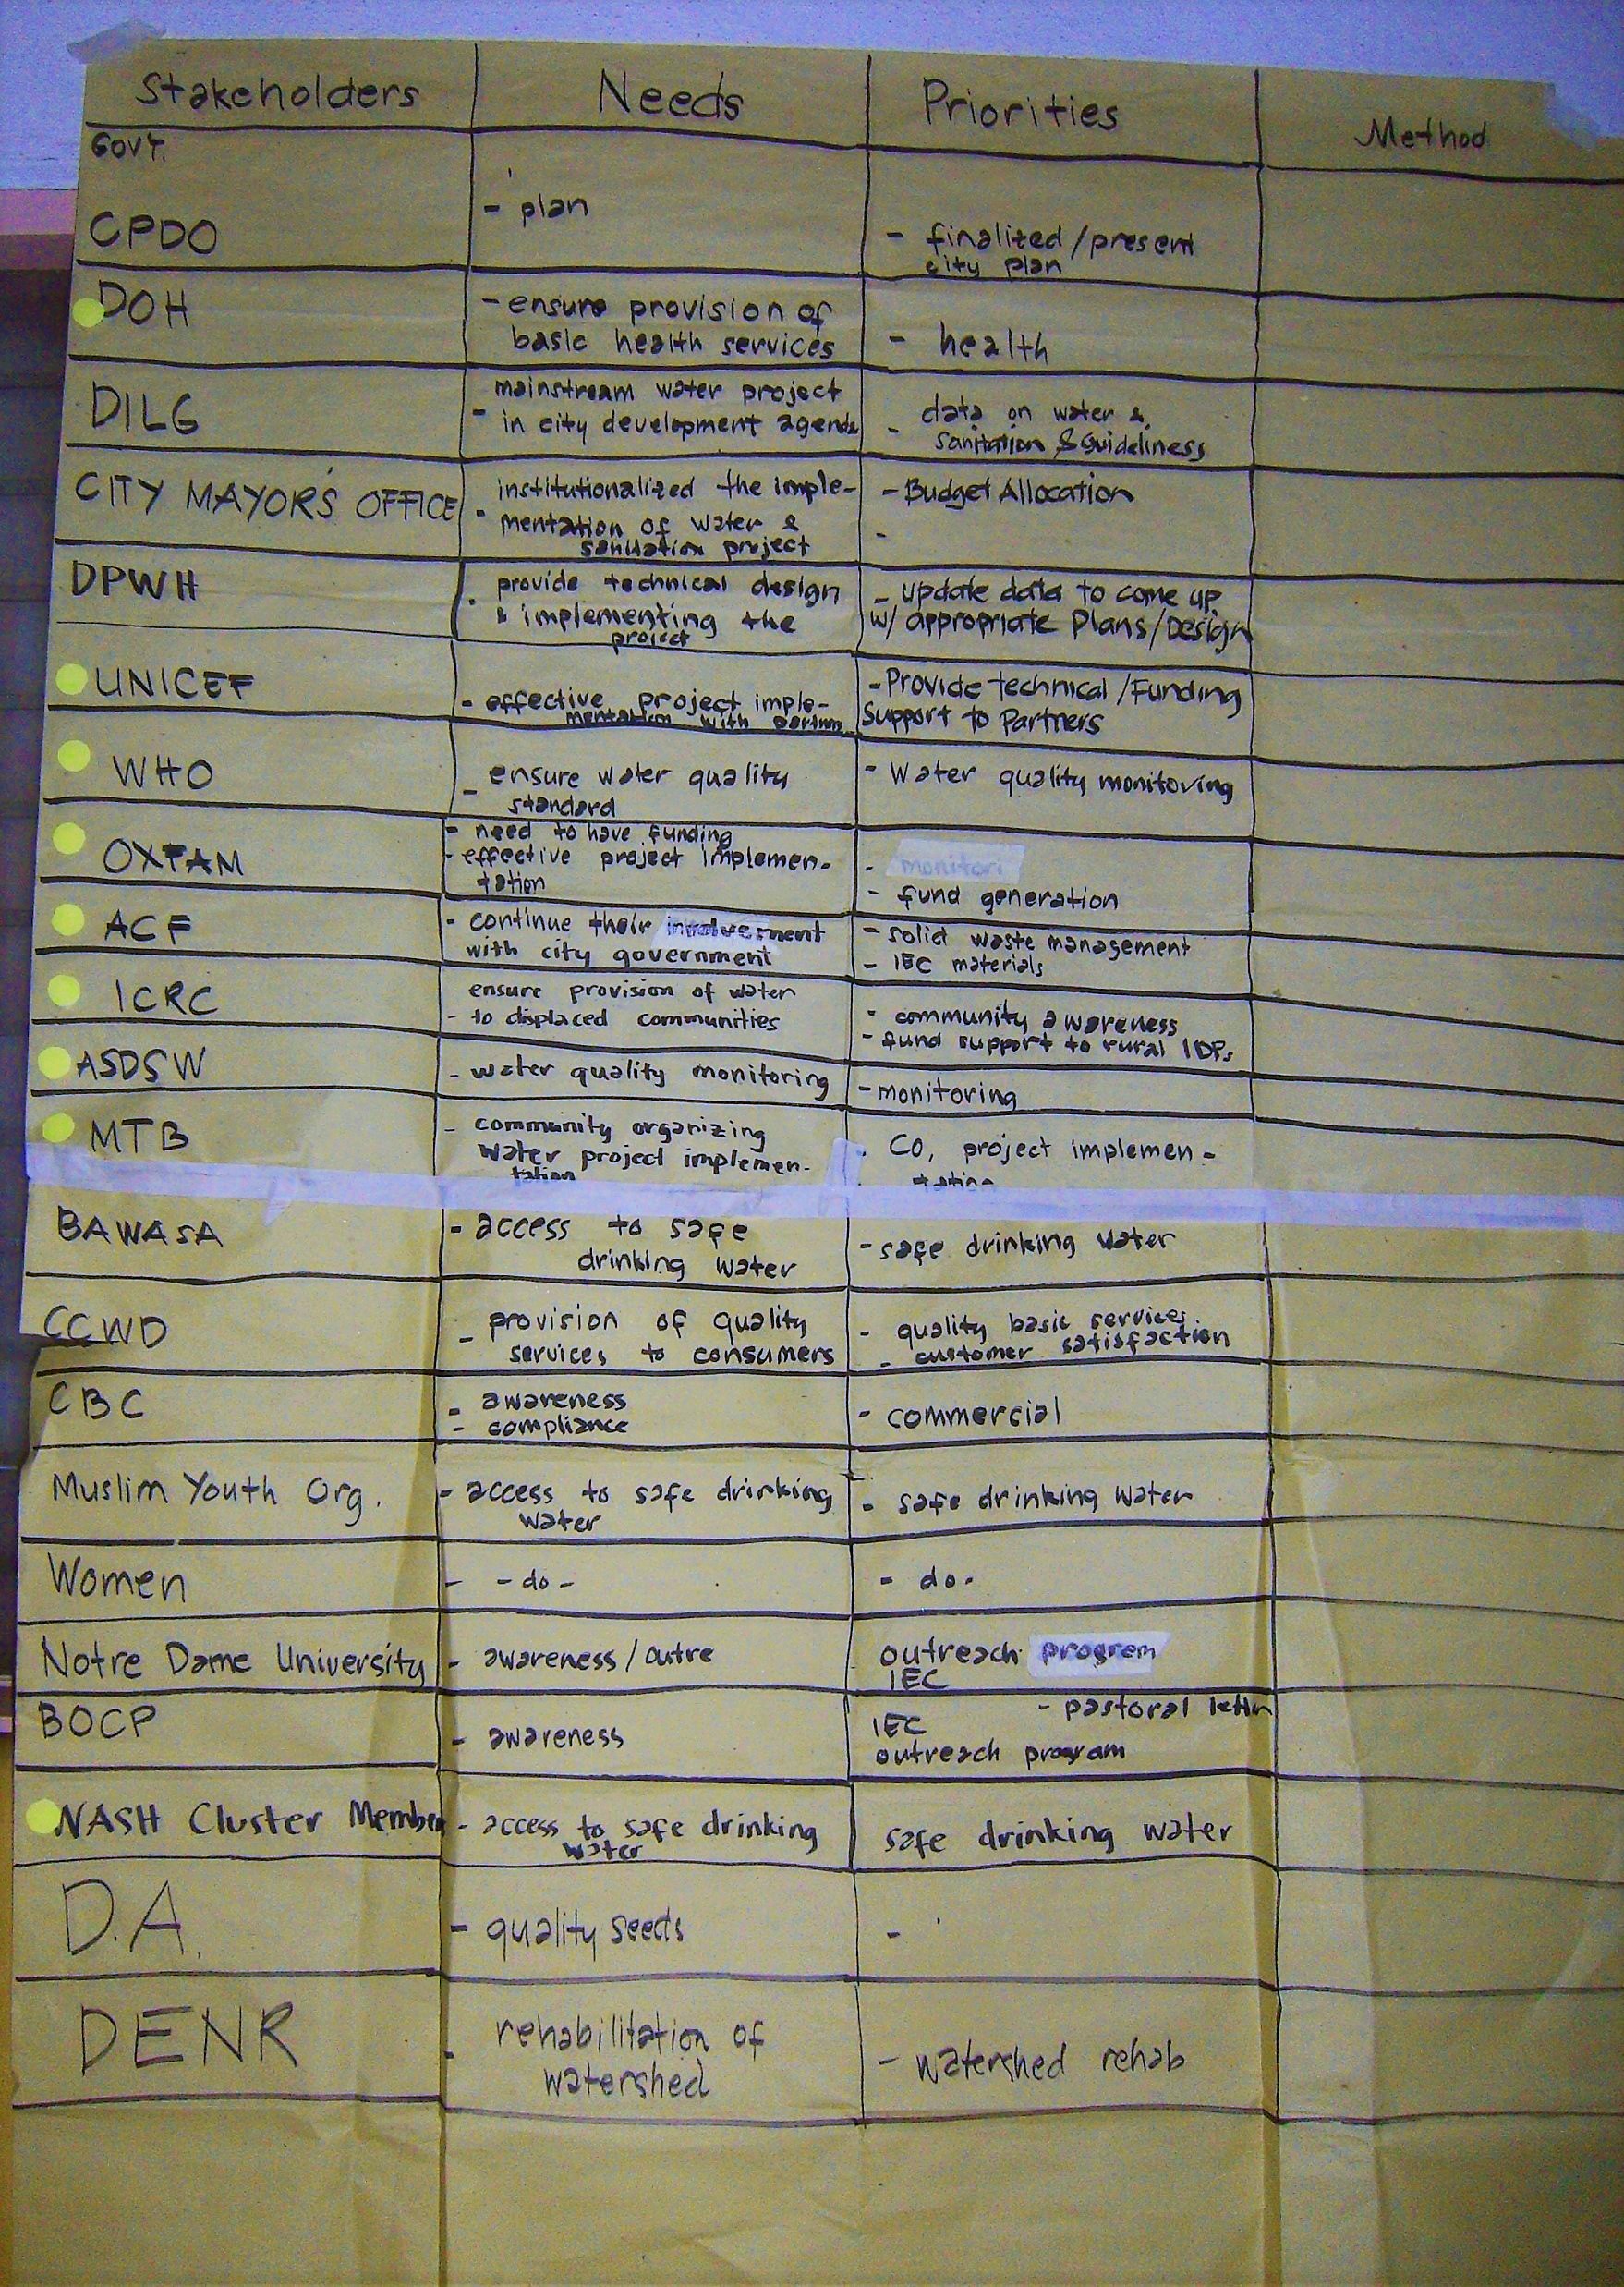 Stakeholders Needs Priorities Method
GOVT.
CPDO
- plan
- finalized/present
city plan
DOH
- ensure provision of
basic health services
- health
DILG
mainstream water project
- in city development agenda
data on water &
- sanitation & Guideliness
CITY MAYOR'S OFFICE
institutionalized the imple-
mentation of water &
sanitation project
- Budget Allocation
-
DPWH
provide technical design
& implementing the
project
- update data to come up
w/ appropriate Plans/Design
UNICEF
- effective project imple-
mentation with
- Provide technical /Funding
Support to Partners
WHO
ensure water quality
- standard
- Water quality monitoring
OXFAM
- need to have funding
- effective project implemen-
tation
- monitori
- fund generation
ACF
- continue their involvement
with city government
- solid waste management
- IEC materials
ICRC
ensure provision of water
- to displaced communities
- community awareness
- fund support to rural IDPs
ASDSW
- water quality monitoring
- monitoring
MTB
- community organizing
water project implemen-
tation
. CO, project implemen-
tation
BAWASA
- access to safe
drinking water
- safe drinking water
CCWD
provision of quality
- services to consumers
- quality basic services
- customer satisfaction
CBC
- awareness
- compliance
- commercial
Muslim Youth Org.
- access to safe drinking
water
- safe drinking water
Women
- - do -
- do.
Notre Dame University
- awareness/outre
outreach program
IEC
BOCP
- awareness
- pastoral letter
IEC
outreach program
WASH Cluster Member
- access to safe drinking
water
safe drinking water
D.A.
- quality seeds
-
DENR
rehabilitation of
- watershed
- watershed rehab